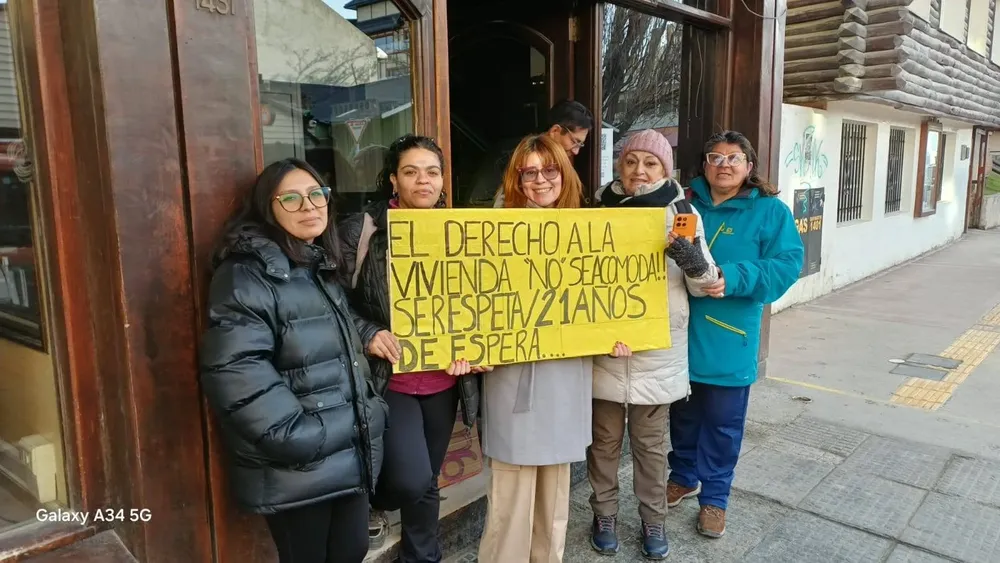 1437
EL DERECHO A LA
VIVIENDA "NO" SE ACOMODA!!
SE RESPETA/21 AÑOS
DE ESPERA....
GAS
Galaxy A34 5G